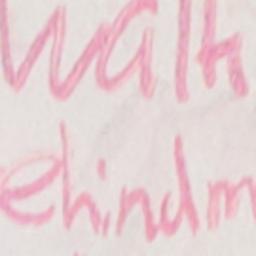 Walk
ehindm